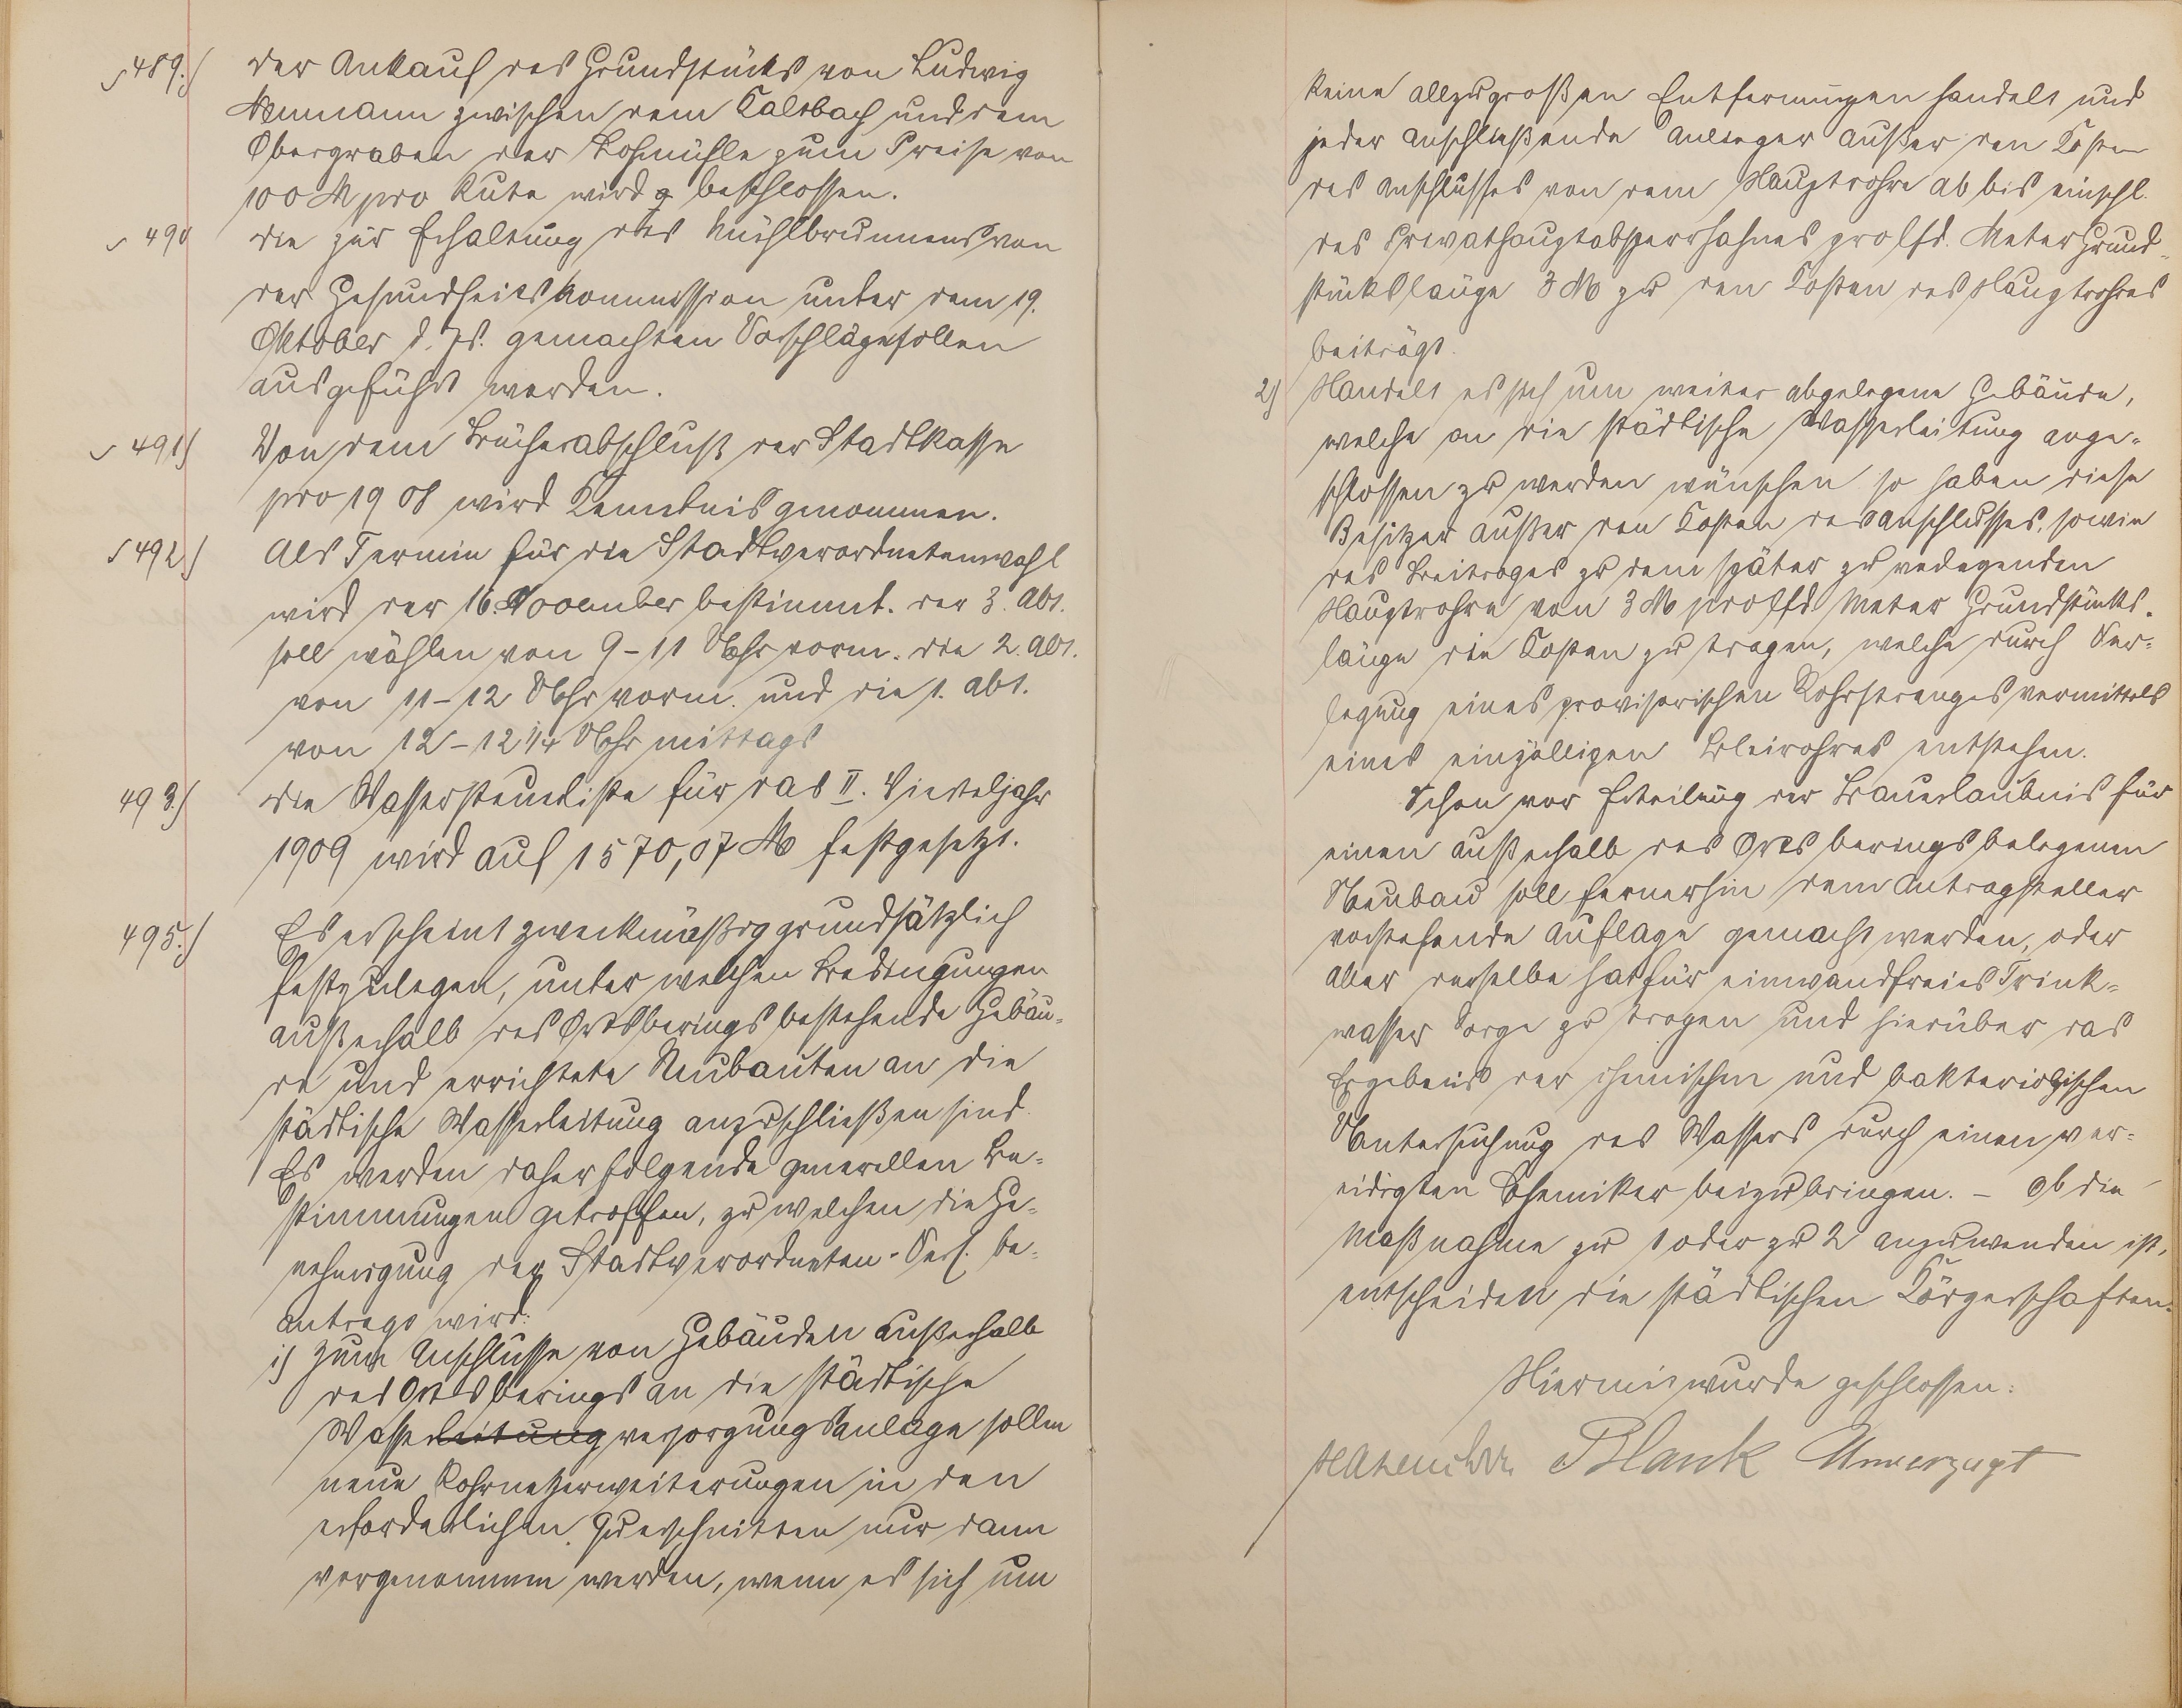 489.) der Ankauf des Grundstücks von Ludwig
Neumann zwischen dem Kaltbach und dem
Obergraben der Lohmühle zum Preise von
100 M pro Rute wird beschlossen.
490 die zur Erhaltung des Mühlbrunnens von
der Gesundheitskommission unter dem 19.
Oktober d. Js. gemachten Vorschläge sollen
ausgeführt werden.
491) Von dem Bücherabschluß der Stadtkasse
pro 1908 wird Kenntnis genommen.
492.) Als Termin für die Stadtverordnetenwahl
wird der 16. November bestimmt. der 3. Abt.
soll wählen von 9-11 Uhr vorm. die 2. Abt.
von 11-12 Uhr vorm. und die 1. Abt.
von 12-12 1/4 Uhr mittags
493.) die Wassersteuerliste für das II. Vierteljahr
1909 wird auf 1570,07 M festgesetzt.
495.) Es erscheint zweckmäßig grundsätzlich
festzulegen, unter welchen Bedingungen
außerhalb des Ortsberings bestehende Gebäu-
de und errichtete Neubauten an die
städtische Wasserleitung anzuschließen sind.
Es werden daher folgende generellen Be-
stimmungen getroffen, zu welchen die Ge-
nehmigung der Stadtverordneten-Vers. be-
antragt wird:
1) Zum Anschlusse von Gebäuden außerhalb
des Ortsberings an die städtische
Wasserleitung versorgungsanlage sollen
neue Rohrnetzerweiterungen in den
erforderlichen Querschnitten nur dann
vorgenommen werden, wenn es sich um
keine allzugroßen Entfernungen handelt und
jeder anschließende Anlieger außer den Kosten
des Anschlusses von dem Hauptrohre ab bis einschl.
des Privathauptabsperrhahnes pro lfd. Meter Grund-
stückslänge 3 M zu den Kosten des Hauptrohres
beiträgt.
2) Handelt es sich um weiter abgelegene Gebäude,
welche an die städtische Wasserleitung ange-
schlossen zu werden wünschen so haben diese
Besitzer außer den Kosten des Anschlusses, sowie
des Beitrages zu dem später zu verlegenden
Hauptrohre von 3 M pro lfd. Meter Grundstücks-
länge die Kosten zu tragen, welche durch Ver-
legung eines provisorischen Rohrstranges vermittels
eines einzölligen Bleirohres entstehen.
Schon vor Erteilung der Bauerlaubnis für
einen außerhalb des Ortsberings belegenen
Neubau soll fernerhin dem Antragsteller
vorstehende Auflage gemacht werden, oder
aber derselbe hat für einwandfreies Trink-
wasser Sorge zu tragen und hierüber das
Ergebnis der chemischen und bakteriologischen
Untersuchung des Wassers durch einen ver-
eidigten Chemiker beizubringen. - Ob die
Maßnahme zu 1 oder zu 2 anzuwenden ist,
entscheiden die städtischen Körperschaften.
Hiermit wurde geschlossen:
Blank Unverzagt